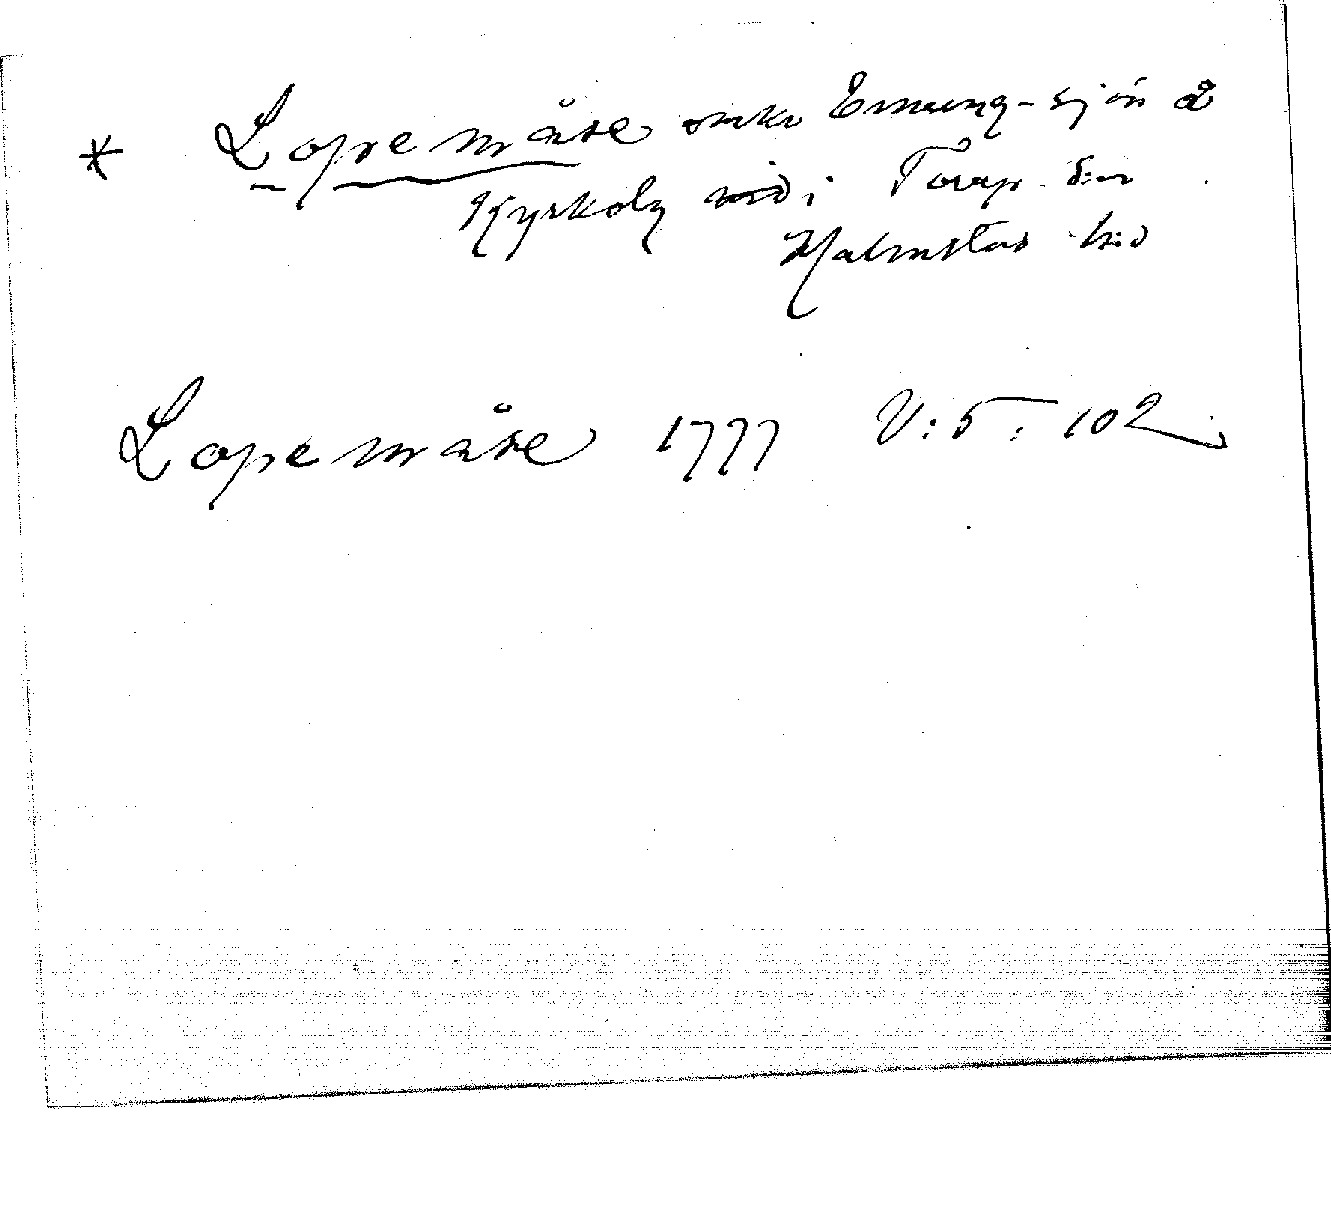 * Lopemåse ... Emmeng-sjön å
Kyrkolg vid i Torup s:n
Halmstad h:d
Lopemåse 1777 V:5:102